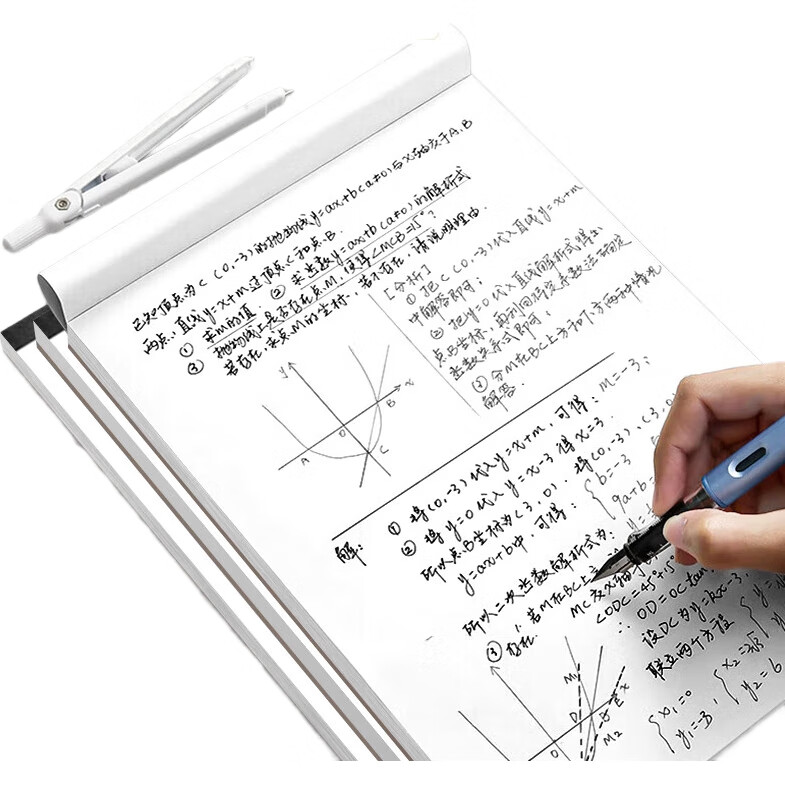 已知顶点为C(0,-3)的抛物线y=ax+b(a≠0)与x轴交于A.B
两点,直线y=x+m过顶点C和点B.
① 求m的值 ② 求函数y=ax+b(a≠0)的解析式
③ 抛物线上是否存在点M,使得∠MCB=15°?
若存在,求点M的坐标.若不存在,请说明理由.
[分析]
① 把C(0,-3)代入直线y=x+m
中解答即可;
② 把y=0代入直线解析式得出
点B坐标,再利用待定系数法确定
函数关系式即可;
③ 分M在BC上方和下方两种情况
解答.
y
x
A
O
B
C
解: ① 将(0,-3)代入y=x+m,可得:m=-3;
② 将y=0代入y=x-3得x=3.
所以点B坐标为(3,0).将(0,-3),(3,0
y=ax+b中,可得:
b=-3
9a+b=
所以二次函数解析式为:
③ 存在.
1.若M在BC上
∠ODC=45°+15°
∴OD=OCtan
设DC为y=kx-3,
联立两个方程
x₁=0
y₁=-3
x₂=
y₂=6
M₁
D
B
E
x
O
M₂